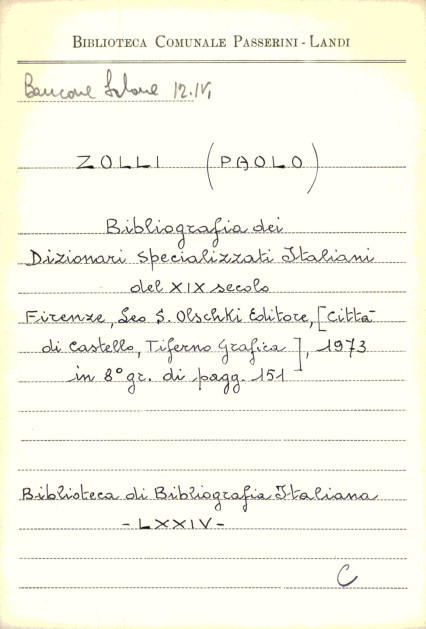 BIBLIOTECA COMUNALE PASSERINI - LANDI
Bancone Salone 12.IV,
ZOLLI (PAOLO)
Bibliografia dei
Dizionari Specializzati Italiani
del XIX secolo
Firenze, Leo S. Olschki Editore, [Città
di Castello, Tiferno Grafica], 1973
in 8° gr. di pagg. 151
Biblioteca di Bibliografia Italiana
- LXXIV -
C